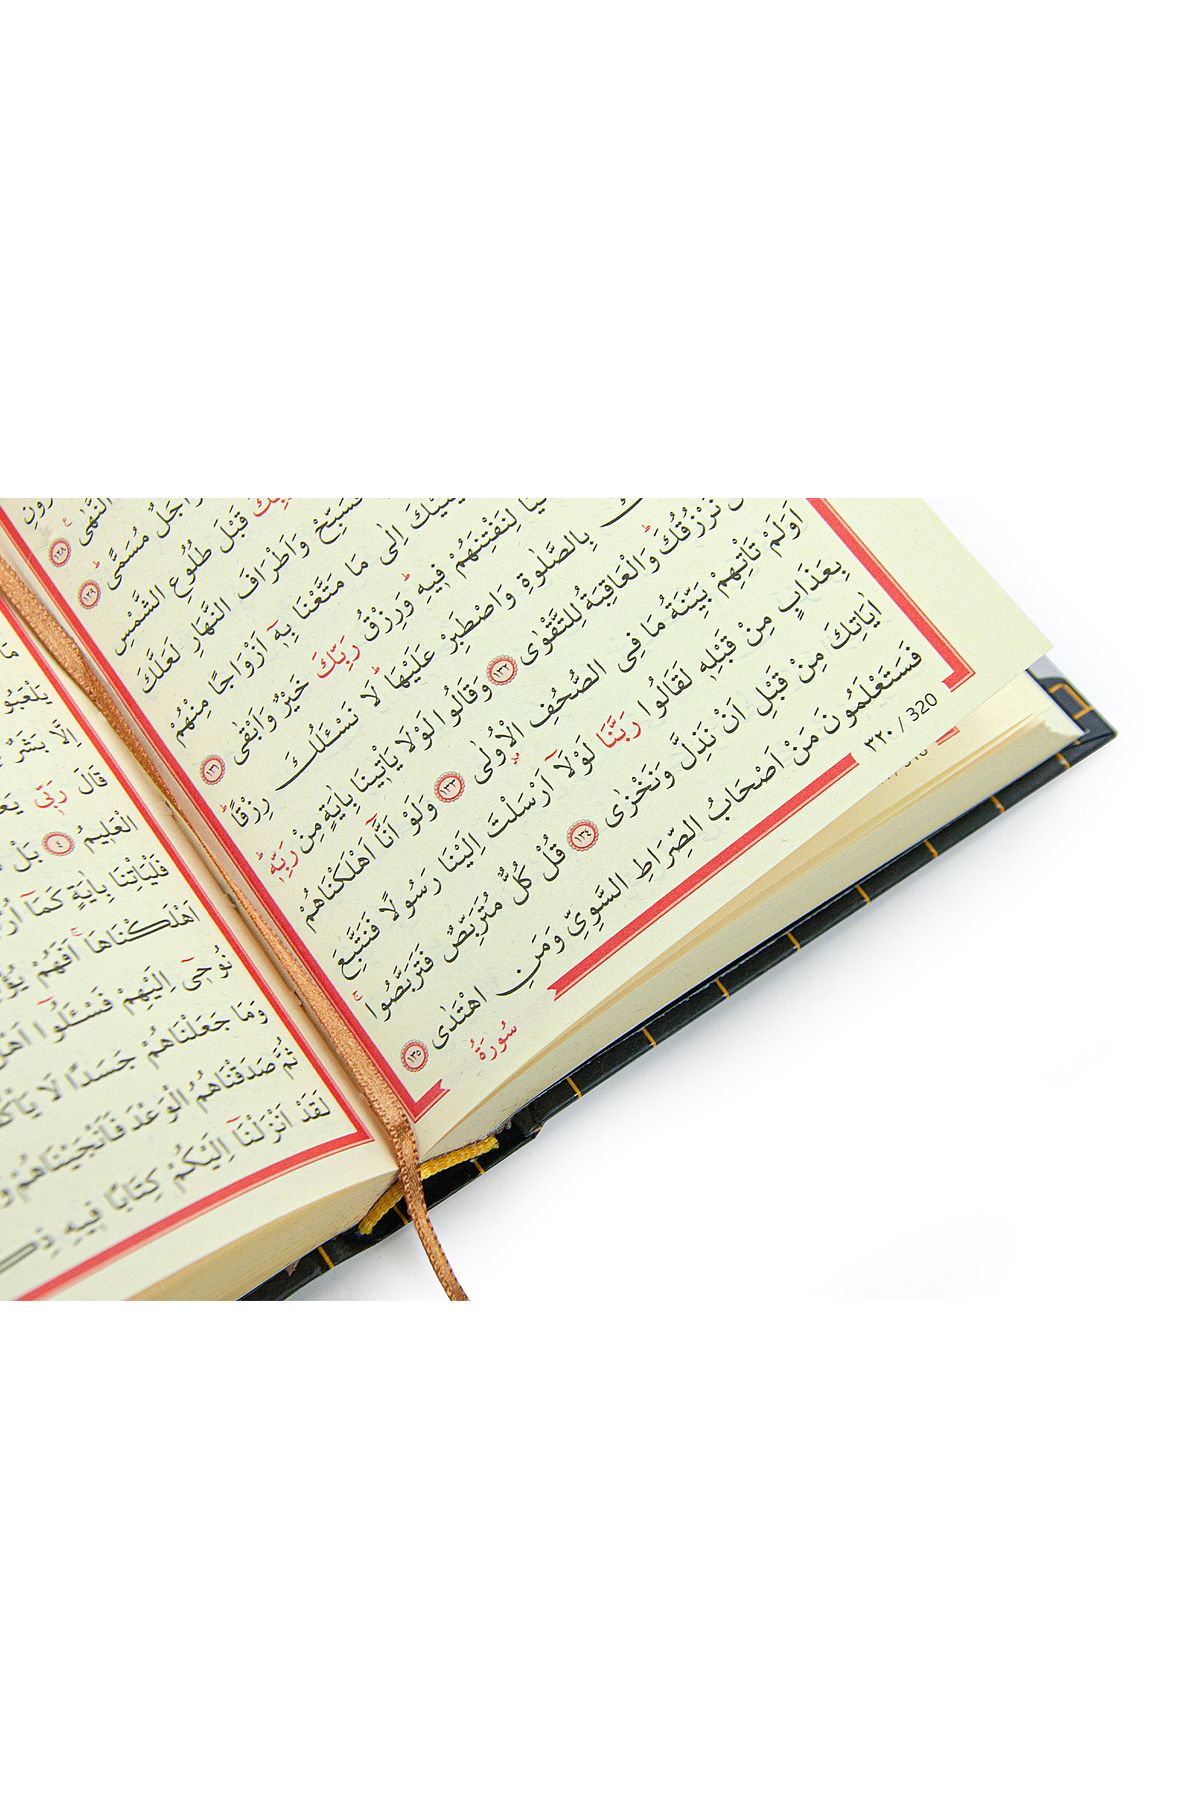 النُّهٰى ﴿١٢٨﴾
وَاَجَلٌ مُسَمًّىۜ ﴿١٢٩﴾
قَبْلَ طُلُوعِ الشَّمْسِ
فَسَبِّحْ وَاَطْرَافَ النَّهَارِ لَعَلَّكَ
اِلٰى مَا مَتَّعْنَا بِه۪ٓ اَزْوَاجًا مِنْهُمْ
لِنَفْتِنَهُمْ ف۪يهِۜ وَرِزْقُ رَبِّكَ خَيْرٌ وَاَبْقٰى ﴿١٣١﴾
بِالصَّلٰوةِ وَاصْطَبِرْ عَلَيْهَاۜ لَا نَسْـَٔلُكَ رِزْقًاۜ
نَرْزُقُكَۜ وَالْعَاقِبَةُ لِلتَّقْوٰى ﴿١٣٢﴾ وَقَالُوا لَوْلَا يَأْت۪ينَا بِاٰيَةٍ مِنْ رَبِّه۪ۜ
اَوَلَمْ تَأْتِهِمْ بَيِّنَةُ مَا فِى الصُّحُفِ الْاُو۫لٰى ﴿١٣٣﴾ وَلَوْ اَنَّٓا اَهْلَكْنَاهُمْ
بِعَذَابٍ مِنْ قَبْلِه۪ لَقَالُوا رَبَّنَا لَوْلَٓا اَرْسَلْتَ اِلَيْنَا رَسُولًا فَنَتَّبِعَ
اٰيَاتِكَ مِنْ قَبْلِ اَنْ نَذِلَّ وَنَخْزٰى ﴿١٣٤﴾ قُلْ كُلٌّ مُتَرَبِّصٌ فَتَرَبَّصُواۚ
فَسَتَعْلَمُونَ مَنْ اَصْحَابُ الصِّرَاطِ السَّوِىِّ وَمَنِ اهْتَدٰى ﴿١٣٥﴾
٣٢٠ / 320
سُورَةُ
مَا
اِلَّا بَشَرٌ
قَالَ رَبّ۪ى
الْعَل۪يمُ ﴿٤﴾ بَلْ
فَلْيَأْتِنَا بِاٰيَةٍ كَمَٓا
اَهْلَكْنَاهَاۚ اَفَهُمْ
نُوح۪ٓى اِلَيْهِمْ فَسْـَٔلُٓوا
وَمَا جَعَلْنَاهُمْ جَسَدًا لَا
ثُمَّ صَدَقْنَاهُمُ الْوَعْدَ فَاَنْجَيْنَاهُمْ
لَقَدْ اَنْزَلْنَٓا اِلَيْكُمْ كِتَابًا ف۪يهِ